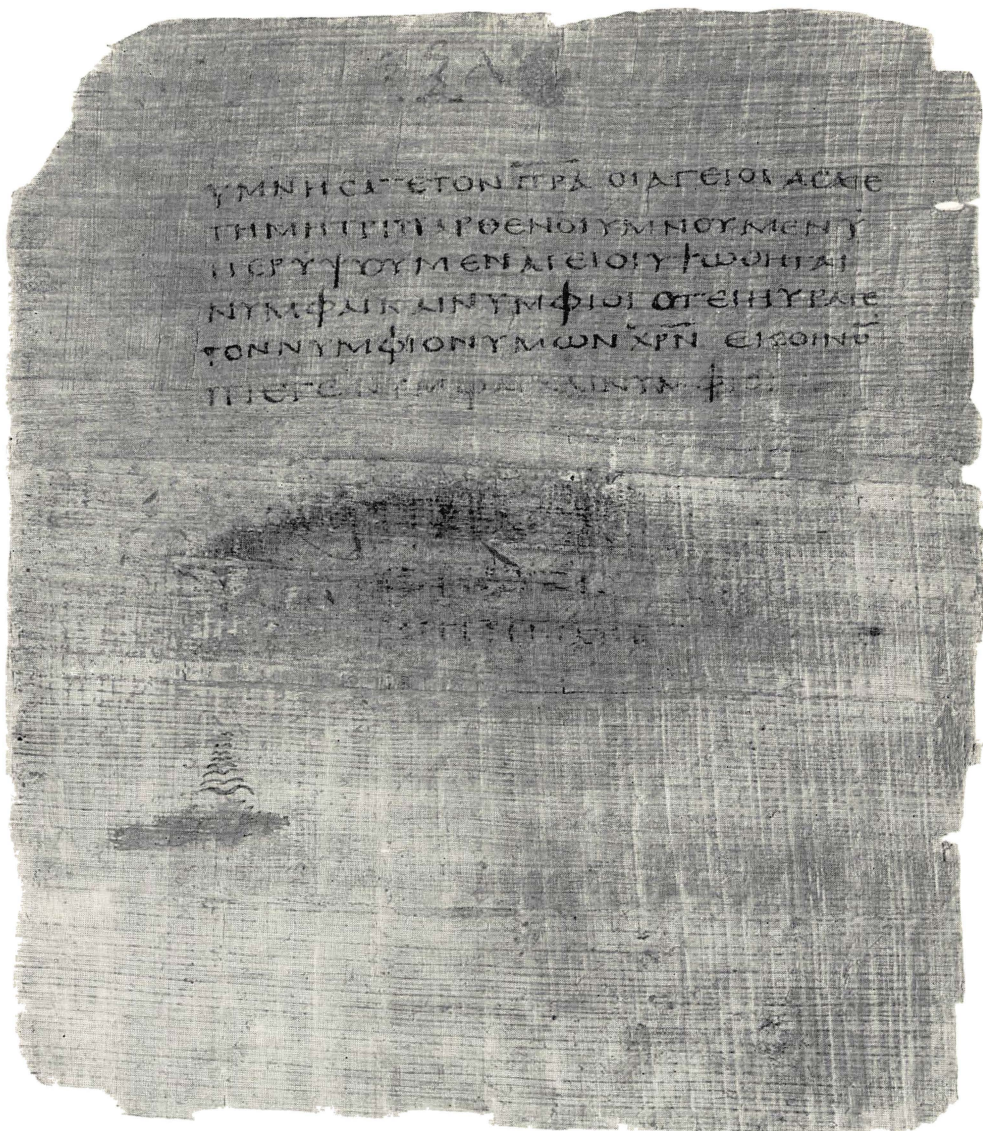 ΥΜΝΗϹΑΤΕ ΤΟΝ Π̅Ρ̅Α̅ ΟΙ ΑΓΕΙΟΙ ΑϹΑΤΕ
ΤΗ ΜΗΤΡΙ ΠΑΡΘΕΝΟΙ ΥΜΝΟΥΜΕΝ Υ
ΠΕΡΥΨΟΥΜΕΝ ΑΓΕΙΟΙ ΥΨΩΘΗΤΑΙ
ΝΥΜΦΑΙ ΚΑΙ ΝΥΜΦΙΟΙ ΟΤΕΙ ΗΥΡΑΤΕ
ΤΟΝ ΝΥΜΦΙΟΝ ΥΜΩΝ Χ̅Ρ̅Ν̅ ΕΙϹ ΟΙΝΟ̅
ΠΙΕΤΕ ΝΥΜΦΑΙ ΚΑΙ ΝΥΜΦΙΟΙ